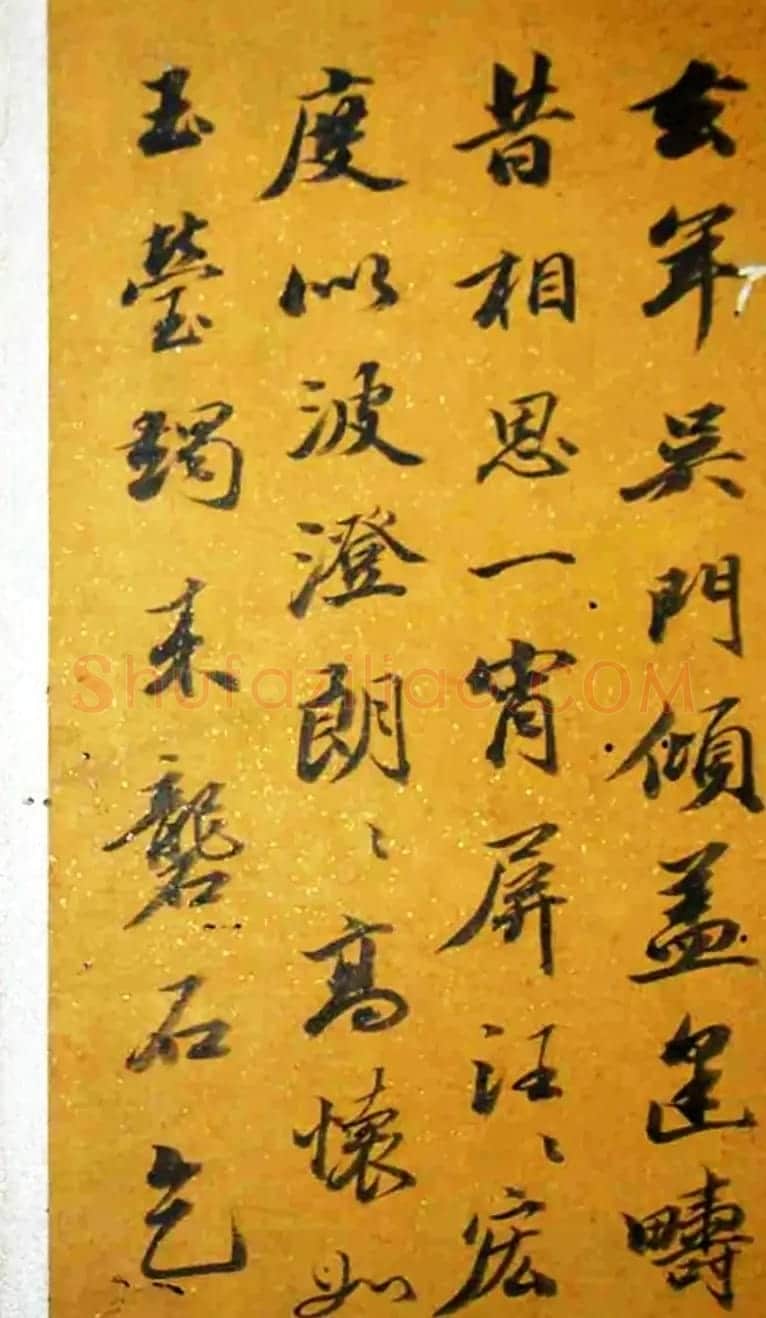 去年吳門傾蓋遂疇
昔相思一宵屏汪〻宏
度似波澄朗〻高懷如
玉瑩鐲来礱石乞
Shufaziliao.COM